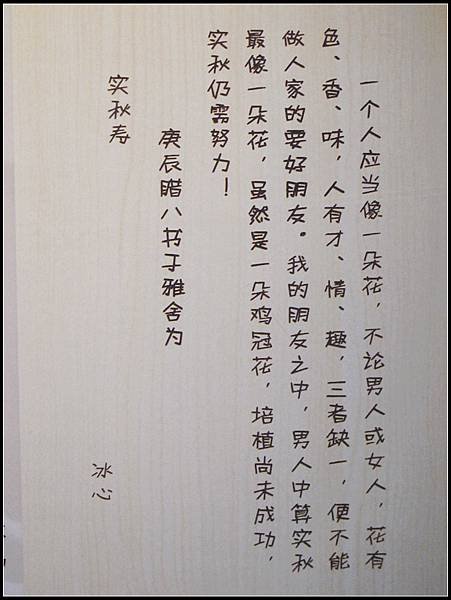 一个人应当像一朵花，不论男人或女人，花有
色、香、味，人有才、情、趣，三者缺一，便不能
做人家的要好朋友。我的朋友之中，男人中算实秋
最像一朵花，虽然是一朵鸡冠花，培植尚未成功，
实秋仍需努力！
庚辰腊八书于雅舍为
实秋寿
冰心